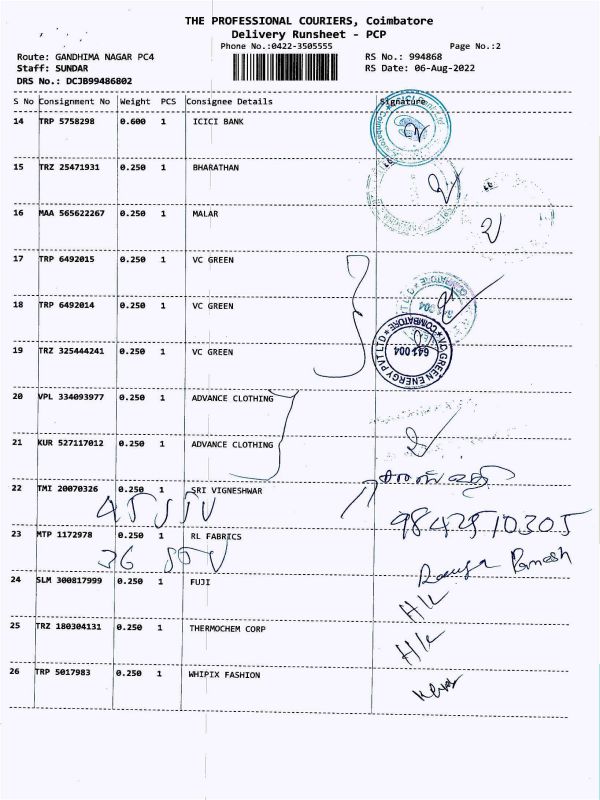 THE PROFESSIONAL COURIERS, Coimbatore
Delivery Runsheet - PCP
Phone No.:0422-3505555
Page No.:2
Route: GANDHIMA NAGAR PC4
RS No.: 994868
Staff: SUNDAR
RS Date: 06-Aug-2022
DRS No.: DCJB99486802
S No Consignment No Weight PCS Consignee Details Signature
14 TRP 5758298 0.600 1 ICICI BANK
15 TRZ 25471931 0.250 1 BHARATHAN
16 MAA 565622267 0.250 1 MALAR
17 TRP 6492015 0.250 1 VC GREEN
18 TRP 6492014 0.250 1 VC GREEN
19 TRZ 325444241 0.250 1 VC GREEN
VC GREEN ENERGY PVT LTD * COIMBATORE *
641 004
20 VPL 334093977 0.250 1 ADVANCE CLOTHING
21 KUR 527117012 0.250 1 ADVANCE CLOTHING
22 TMI 20070326 0.250 1 SRI VIGNESHWAR
9842510305
23 MTP 1172978 0.250 1 RL FABRICS
36
24 SLM 300817999 0.250 1 FUJI
H/K
25 TRZ 180304131 0.250 1 THERMOCHEM CORP
H/K
26 TRP 5017983 0.250 1 WHIPIX FASHION